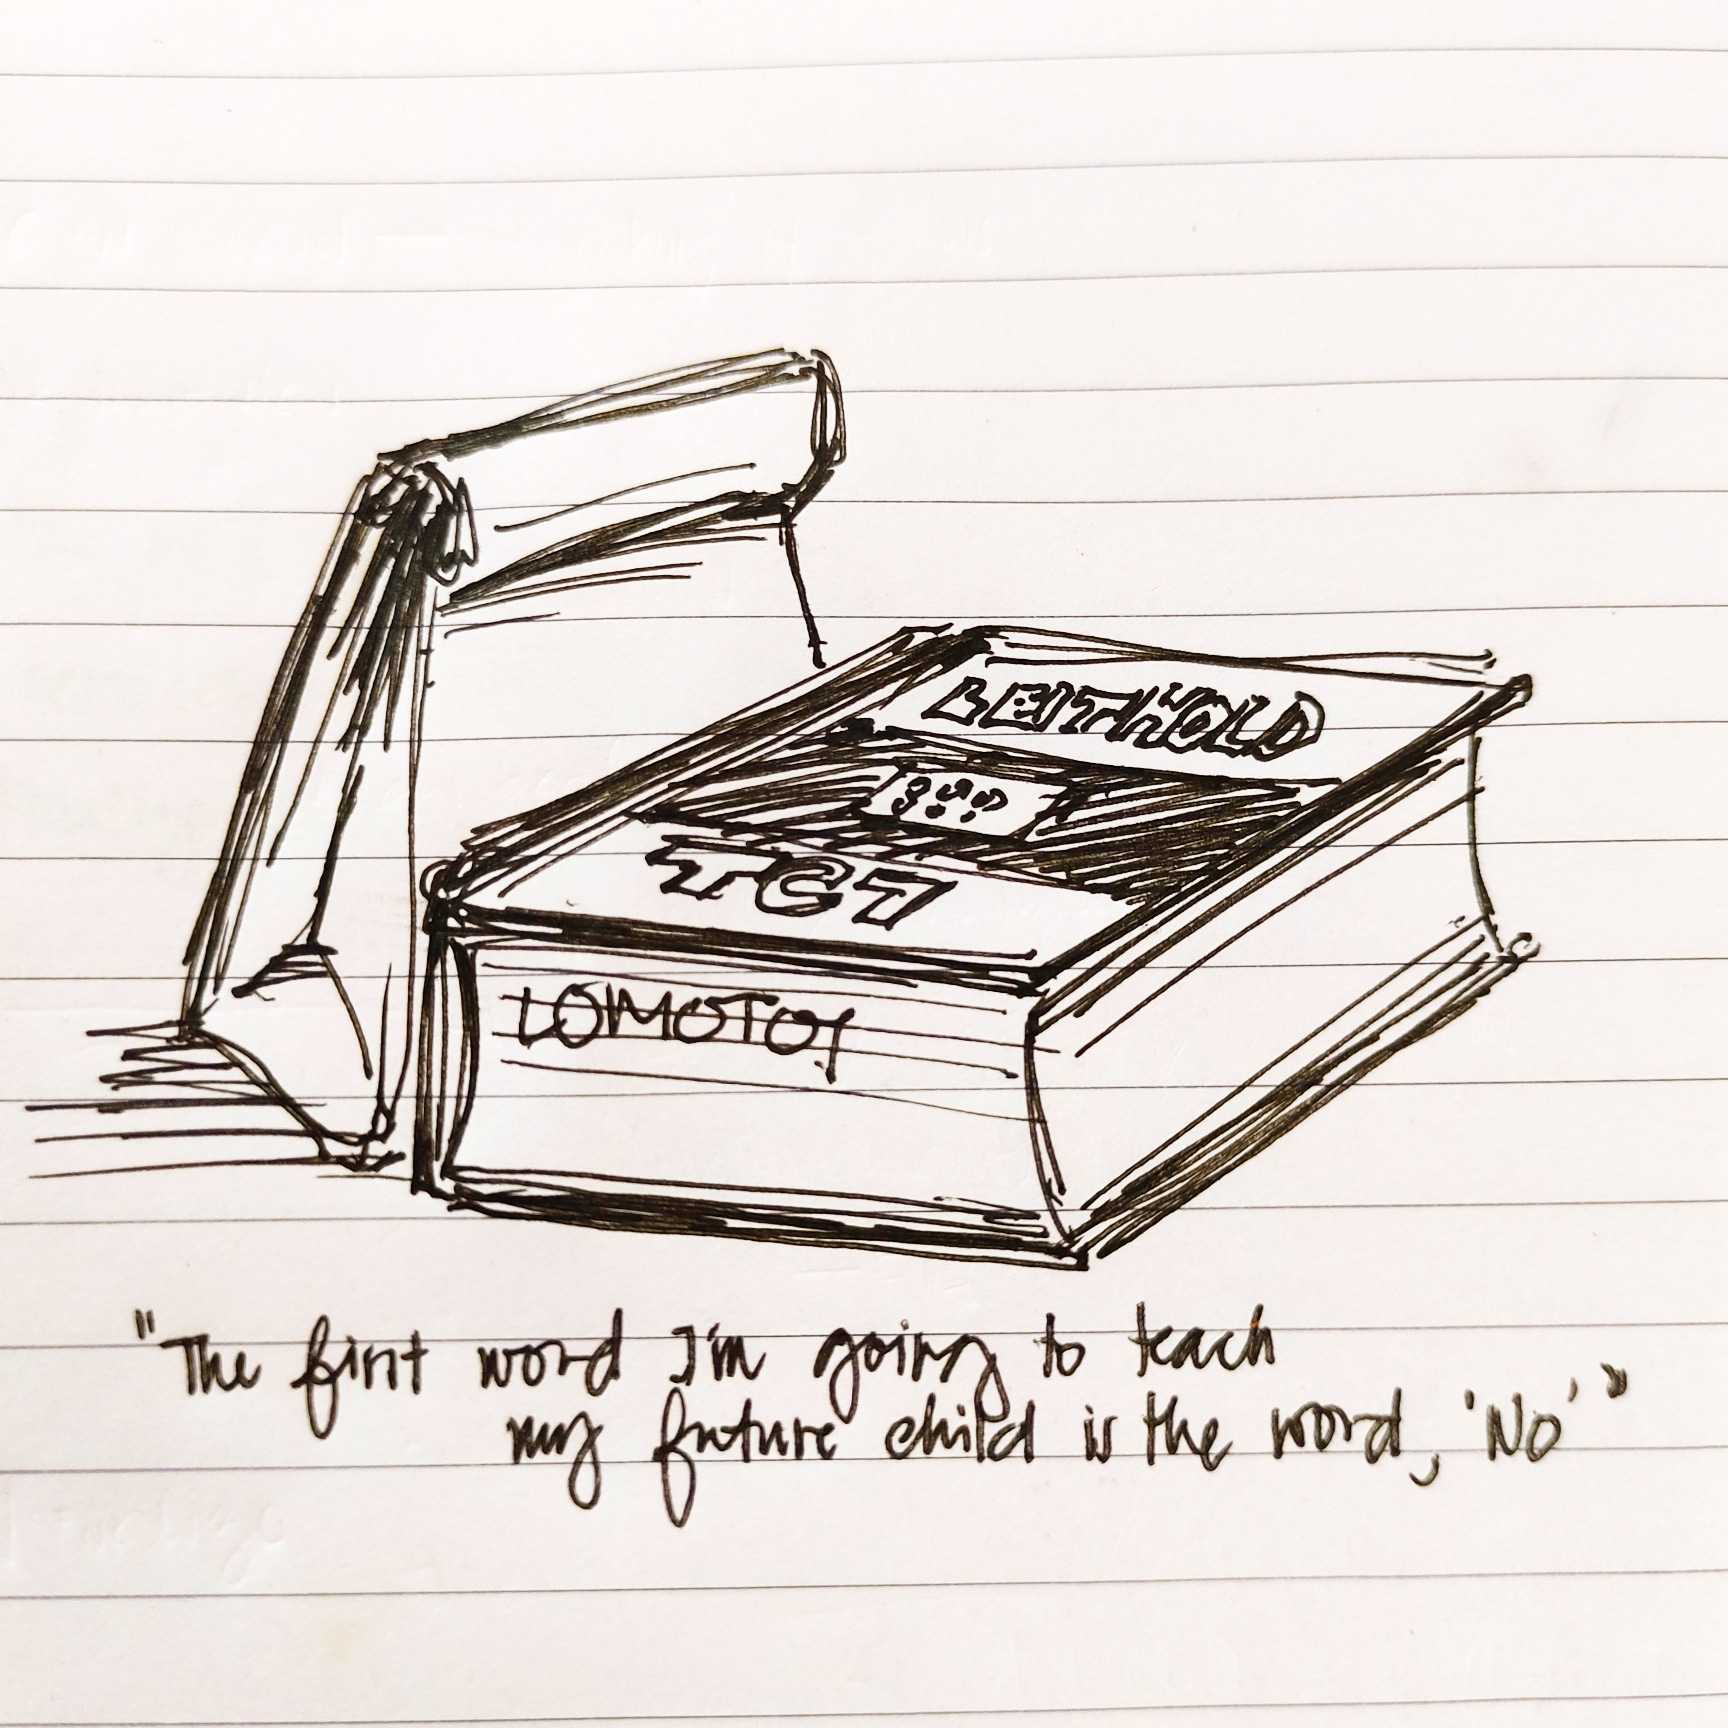 BERTHOLD
TCT
LOMOTOY
"The first word I'm going to teach
my future child is the word, 'No'"